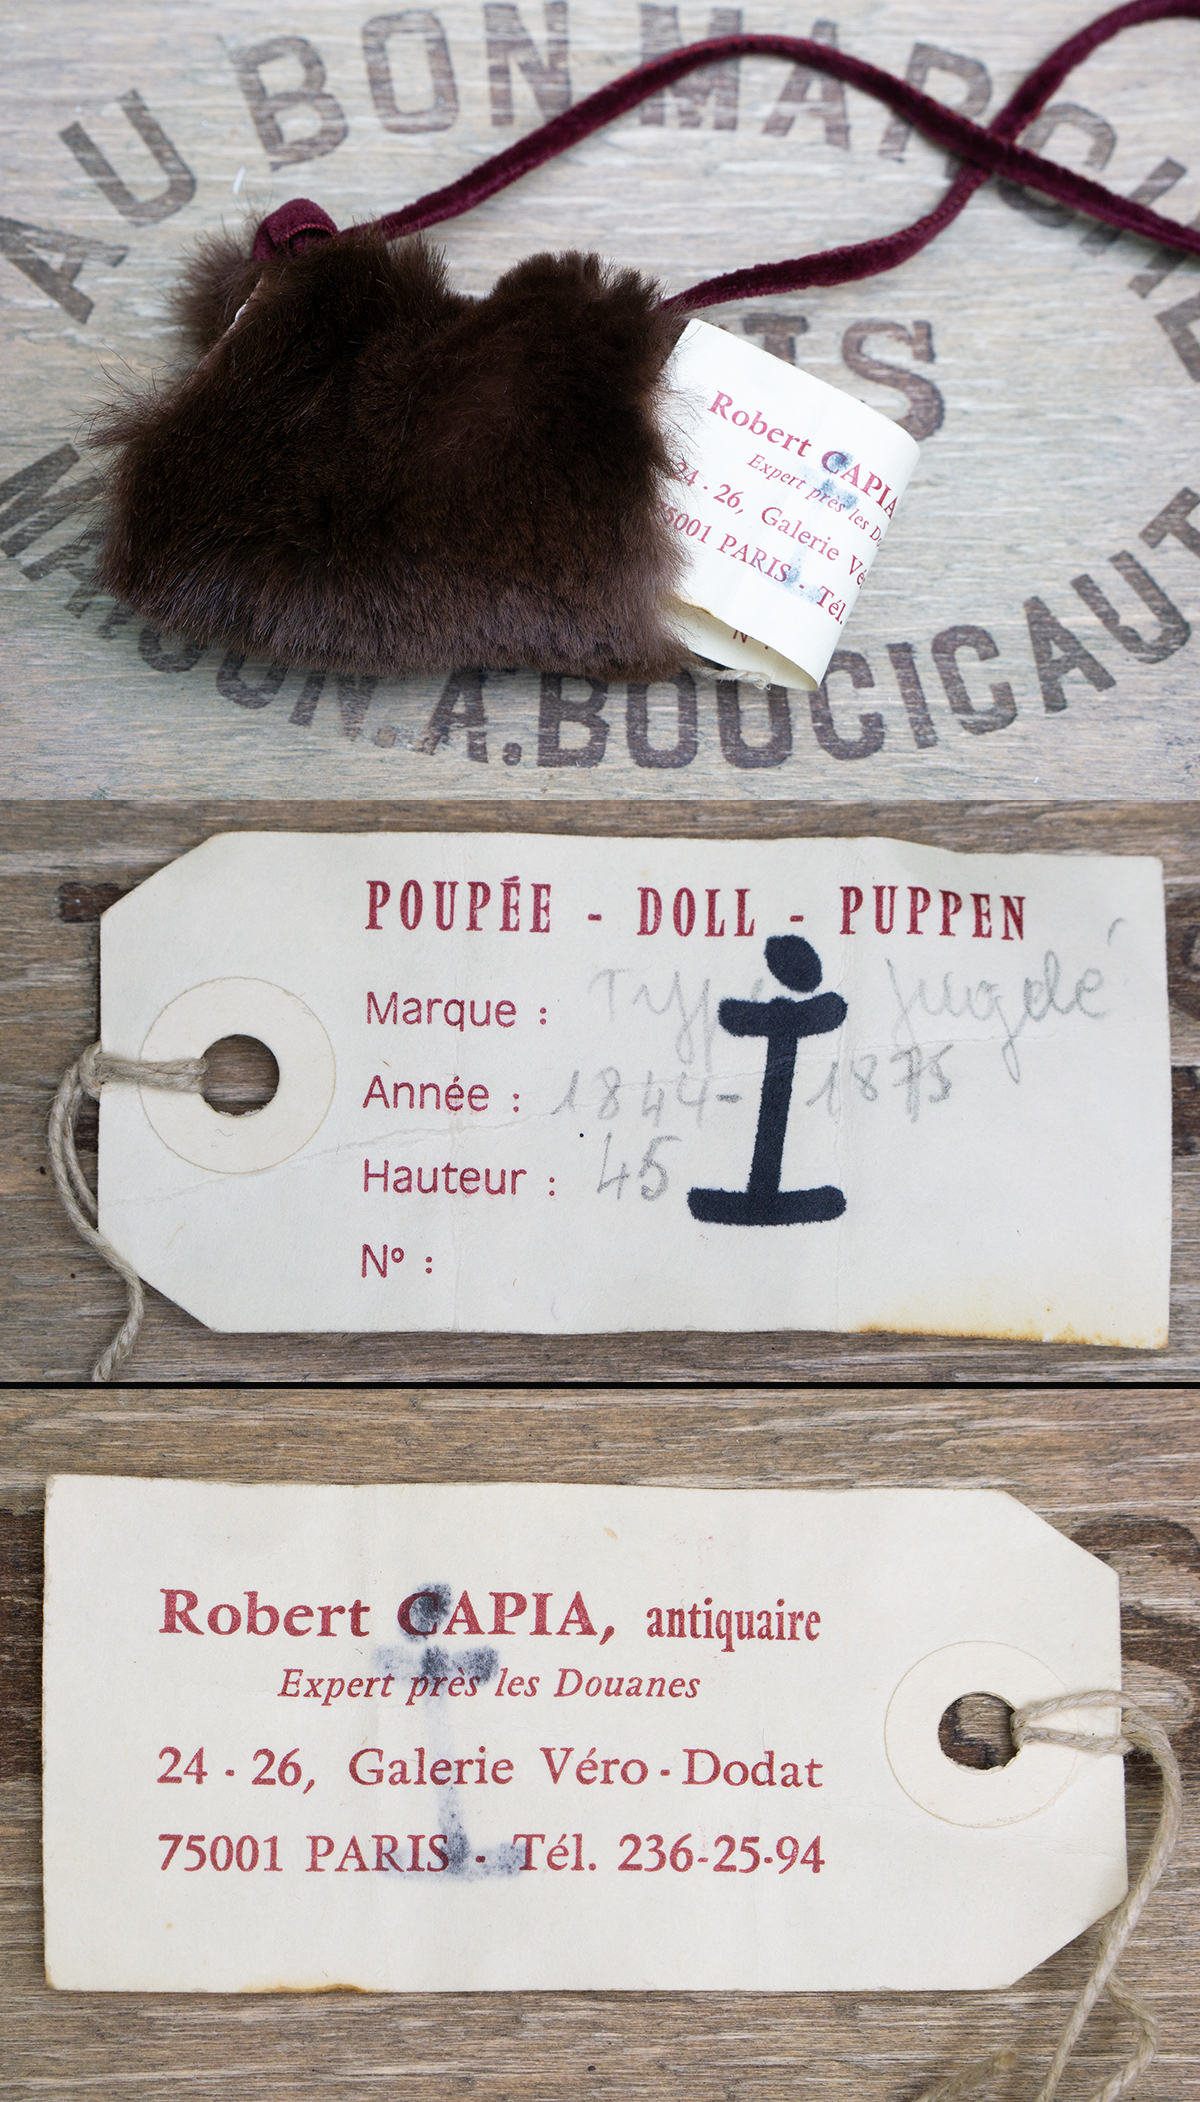 AU BON MARCHE
IS
MAISON.A.BOUCICAUT
Robert CAPIA
Expert près les D
24 - 26, Galerie Vé
5001 PARIS - Tél.
N° :
POUPÉE - DOLL - PUPPEN
Marque : Type Jugelé
Année : 1844- 1875
Hauteur : 45
i
N° :
Robert CAPIA, antiquaire
Expert près les Douanes
24 - 26, Galerie Véro-Dodat
75001 PARIS - Tél. 236-25-94